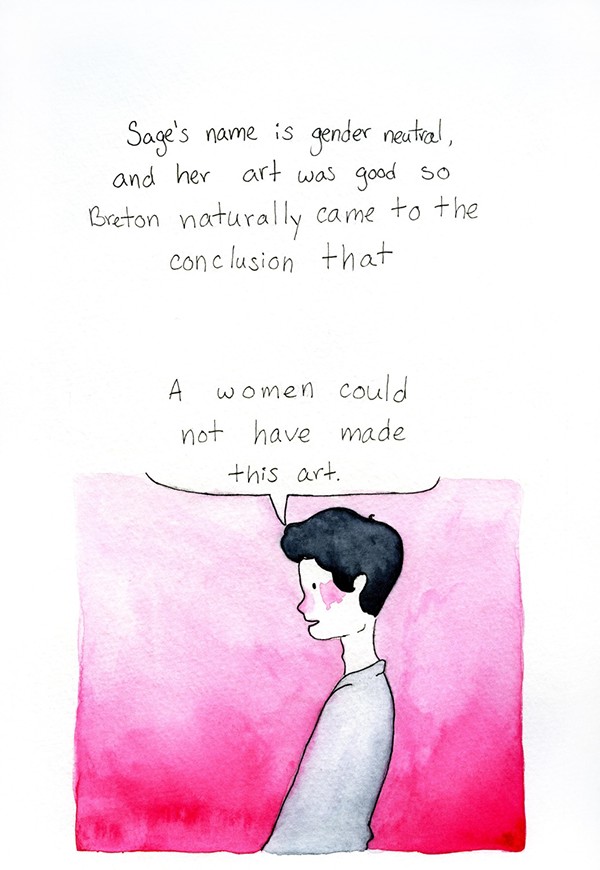 Sage's name is gender neutral,
and her art was good so
Breton naturally came to the
conclusion that
A women could
not have made
this art.